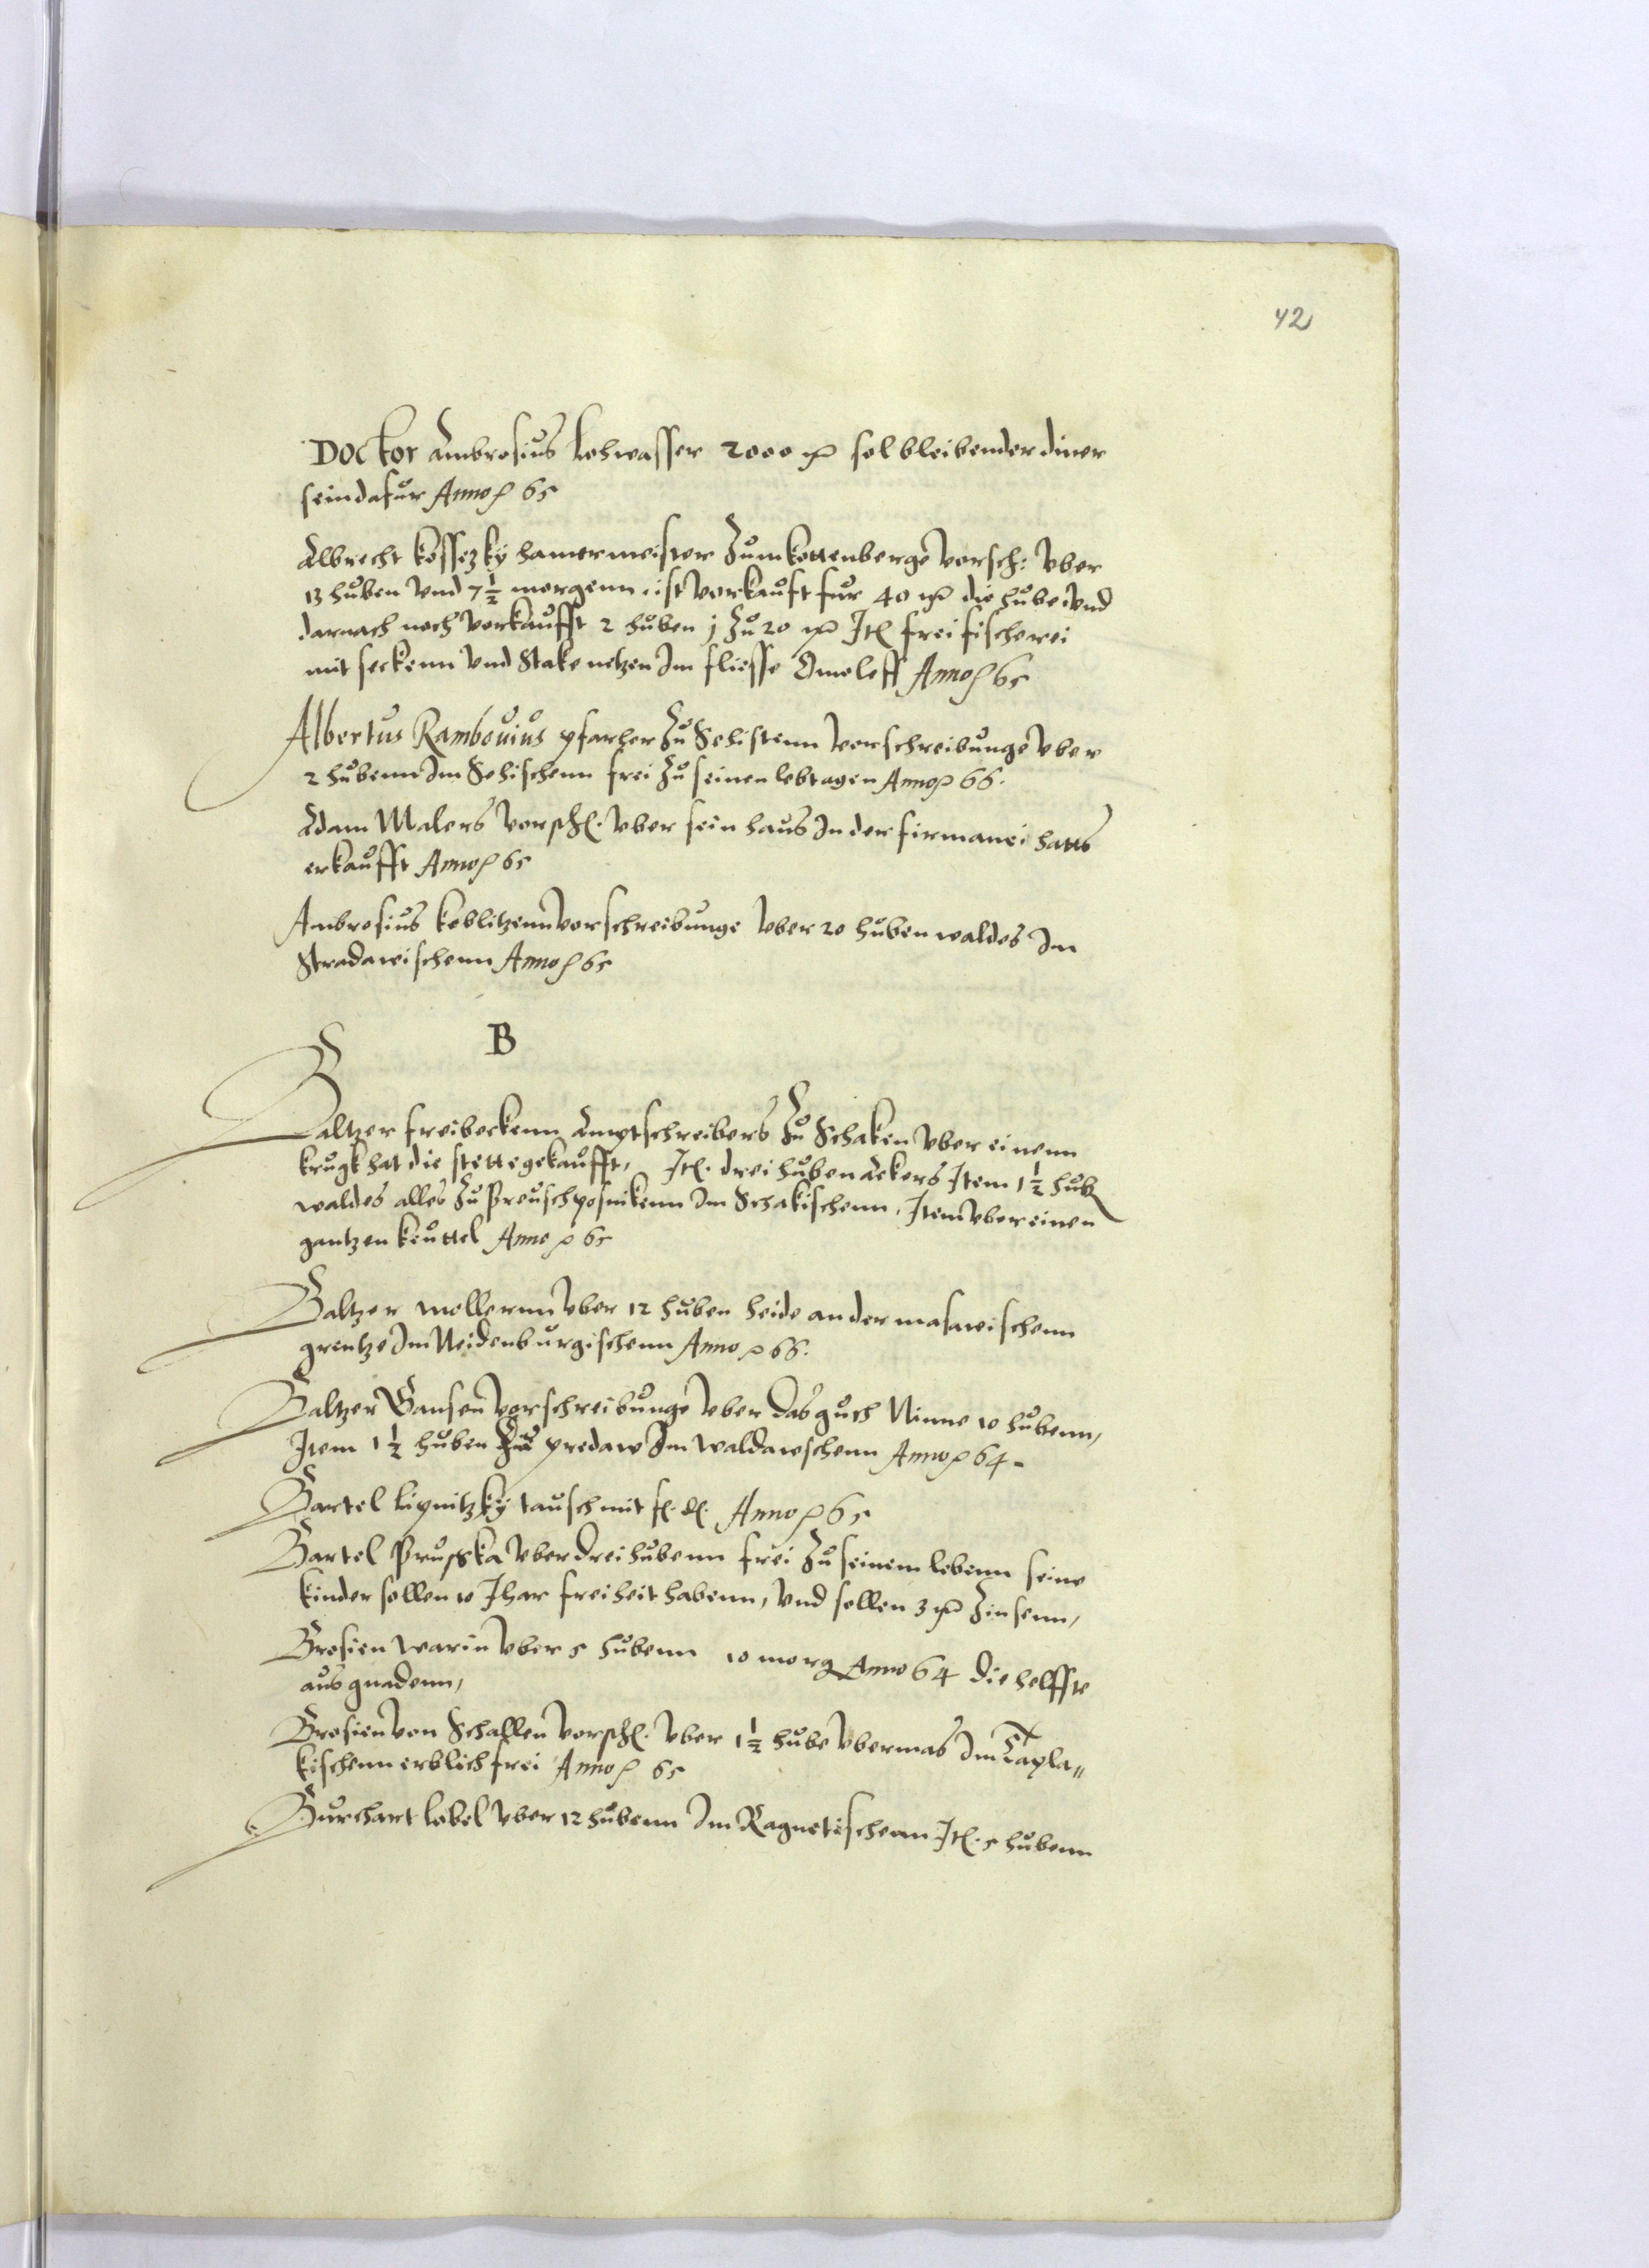 42
Doctor Ambrosius Lobwasser 2000 mk sol bleibender diner
sein dafur Anno p 65
Albrecht Kossizky hamermeister Zum Kottenberge Vorsch: Vber
13 huben Vnd 7 1/2 morgenn, ist Vorkauft fur 40 mk die hube Vnd
darnach noch Vorkaufft 2 huben j Zu 20 mk Jt. frei fischerei
mit seckenn Vnd Stake netzen Jm fliesse Omoleff Anno p 65
Albertus Rambouius pfarher Zu Sehistenn Vorschreibunge Vber
2 hubenn Jm Sehischenn frei Zu seinen lebtagen Anno p 66.
Adam Malers Vorsch. Vber sein haus Jn der firmanei hatts
erkaufft Anno p 65
Ambrosius Koblitzenn Vorschreibunge Vber 20 huben waldes Jm
Stradawischenn Anno p 65
B
Baltzer freibeckenn Amptschreibers Zu Schaken Vber einenn
krugk hat die stette gekaufft, Jt. drei huben Ackers Jtem 1 1/2 hub
waldes alles Zu Preuschposnikenn Jm Schakischenn, Jtem Vber einen
gantzen keuttel Anno p 65
Baltzer mollernn Vber 12 huben heide an der masawischenn
grentze Jm Neidenburgischenn Anno p 66.
Baltzer Gansen Vorschreibunge Vber das guth Ninne 10 hubenn,
Jtem 1 1/2 huben Zu predaw Jm waldawschenn Anno p 64.
Bartel Lipnitzky tausch mit f. d. Anno p 65
Bartel Prusska Vber drei hubenn frei Zu seinem lebenn seine
kinder sollen 10 Jhar freiheit habenn, Vnd sollen 3 mk Zinsenn,
Brosien Warin Vber 5 hubenn 10 morg Anno 64 die helffte
aus gnadenn,
Brosien Von Schallen Vorsch. Vber 1 1/2 hube Vbermas Jm Tapla„
kischenn erblich frei Anno p 65
Burchart Lebel Vber 12 hubenn Jm Ragnetischenn Jt. 5 hubenn